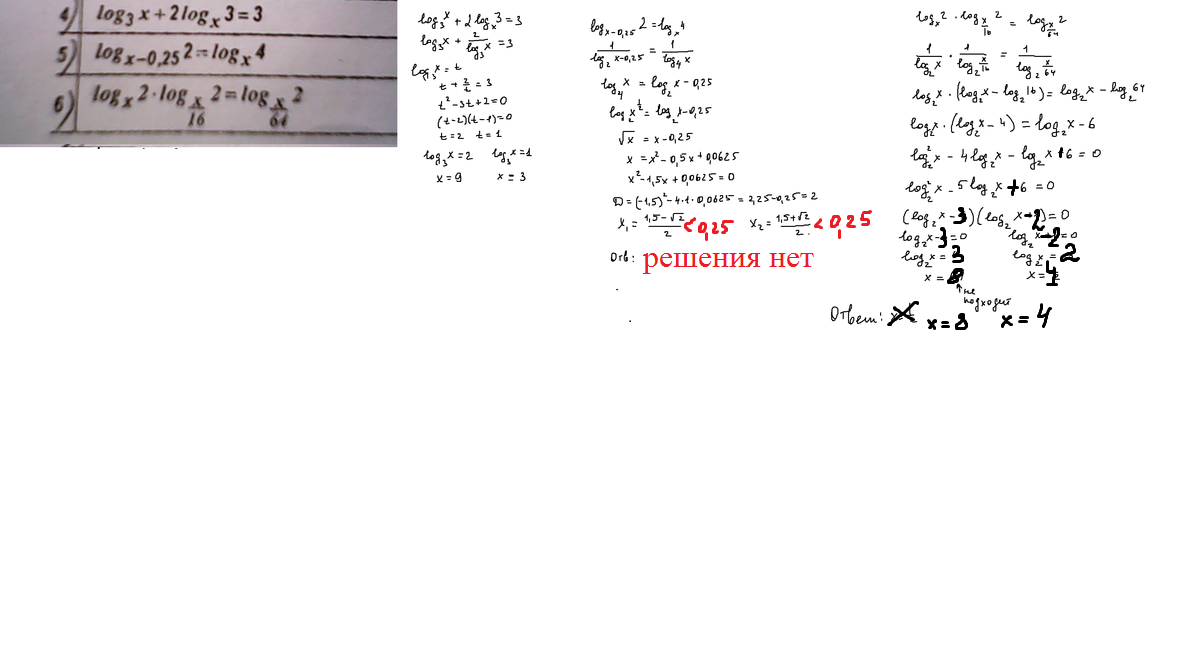 4) log₃ x + 2 logₓ 3 = 3
5) logₓ₋₀,₂₅ 2 = logₓ 4
6) logₓ 2 · log_{x/16} 2 = log_{x/64} 2
log₃ x + 2 logₓ 3 = 3
log₃ x + 2/log₃ x = 3
log₃ x = t
t + 2/t = 3
t² - 3t + 2 = 0
(t-2)(t-1) = 0
t = 2 t = 1
log₃ x = 2 log₃ x = 1
x = 9 x = 3
logₓ₋₀,₂₅ 2 = logₓ 4
1/(log₂ x-0,25) = 1/(log₄ x)
log₄ x = log₂ x - 0,25
log₂ x^{1/2} = log₂ x - 0,25
√x = x - 0,25
x = x² - 0,5x + 0,0625
x² - 1,5x + 0,0625 = 0
D = (-1,5)² - 4·1·0,0625 = 2,25 - 0,25 = 2
x₁ = (1,5-√2)/2 < 0,25 x₂ = (1,5+√2)/2 < 0,25
Отв: решения нет
logₓ 2 · log_{x/16} 2 = log_{x/64} 2
1/(log₂ x) · 1/(log₂ x/16) = 1/(log₂ x/64)
log₂ x · (log₂ x - log₂ 16) = log₂ x - log₂ 64
log₂ x · (log₂ x - 4) = log₂ x - 6
log₂² x - 4 log₂ x - log₂ x + 6 = 0
log₂² x - 5 log₂ x + 6 = 0
(log₂ x - 3)(log₂ x - 2) = 0
log₂ x - 3 = 0 log₂ x - 2 = 0
log₂ x = 3 log₂ x = 2
x = 8 x = 4
не
подходит
Ответ: x = 8 x = 4